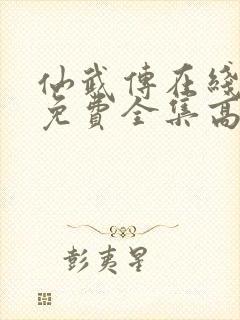 仙武傳在綫
免費全集高
彭夷星